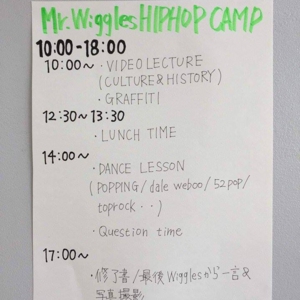 Mr. Wiggles HIPHOP CAMP
10:00-18:00
10:00~ ・VIDEO LECTURE
(CULTURE&HISTORY)
・GRAFFITI
12:30~13:30
・LUNCH TIME
14:00~
・DANCE LESSON
(POPPING/dale weboo/52pop/
toprock・・)
・Question time
17:00~
・修了書/最後Wigglesから一言&
写真撮影